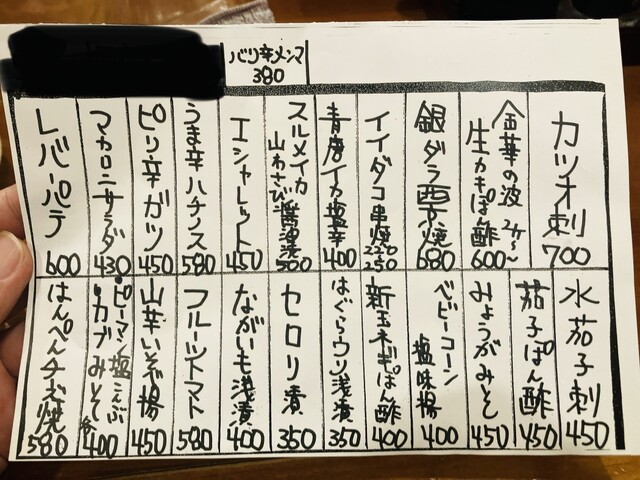 バリ辛メンマ
380
カツオ刺
700
金華の波 2ケ〜
生カキぽん酢
600〜
銀ダラ西京焼
680
イイダコ串焼
250
青唐イカ塩辛
400
スルメイカ
山わさび醤油漬
500
エシャレット
450
うま辛ハチノス
580
ピリ辛ガツ
450
マカロニサラダ
430
レバーパテ
600
水茄子刺
450
茄子ぽん酢
450
みょうがみそ
450
ベビーコーン
塩味揚
400
新玉ネギぽん酢
400
はぐらウリ浅漬
350
セロリ漬
350
ながいも浅漬
400
フルーツトマト
580
山芋いそべ揚
450
・ピーマン塩こんぶ
・カブみそ
各400
はんぺんチーズ焼
580